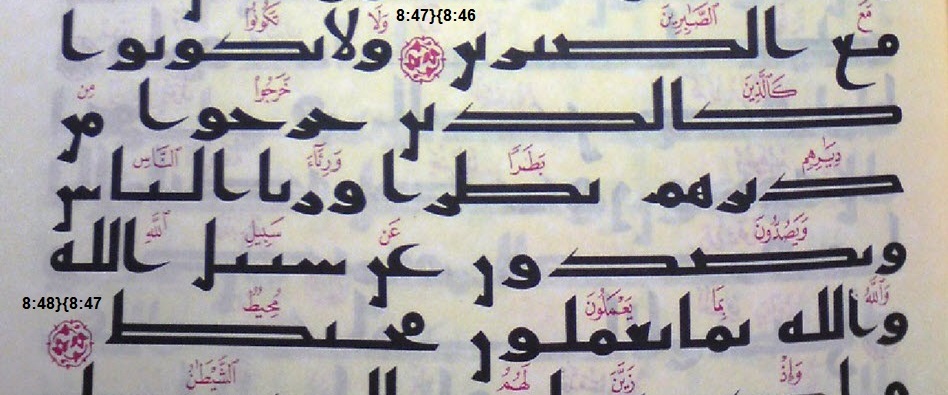 8:47}{8:46
مَعَ ٱلصَّٰبِرِينَ وَلَا تَكُونُوا۟
مع الصبرين ولا تكونوا
كَٱلَّذِينَ خَرَجُوا۟ مِن
كالذين خرجوا من
دِيَٰرِهِم بَطَرًا وَرِئَآءَ ٱلنَّاسِ
ديرهم بطرا وريا الناس
وَيَصُدُّونَ عَن سَبِيلِ ٱللَّهِ
ويصدون عن سبيل الله
8:48}{8:47
وَٱللَّهُ بِمَا يَعْمَلُونَ مُحِيطٌ
والله بما يعملون محيط
وَإِذْ زَيَّنَ لَهُمُ ٱلشَّيْطَٰنُ